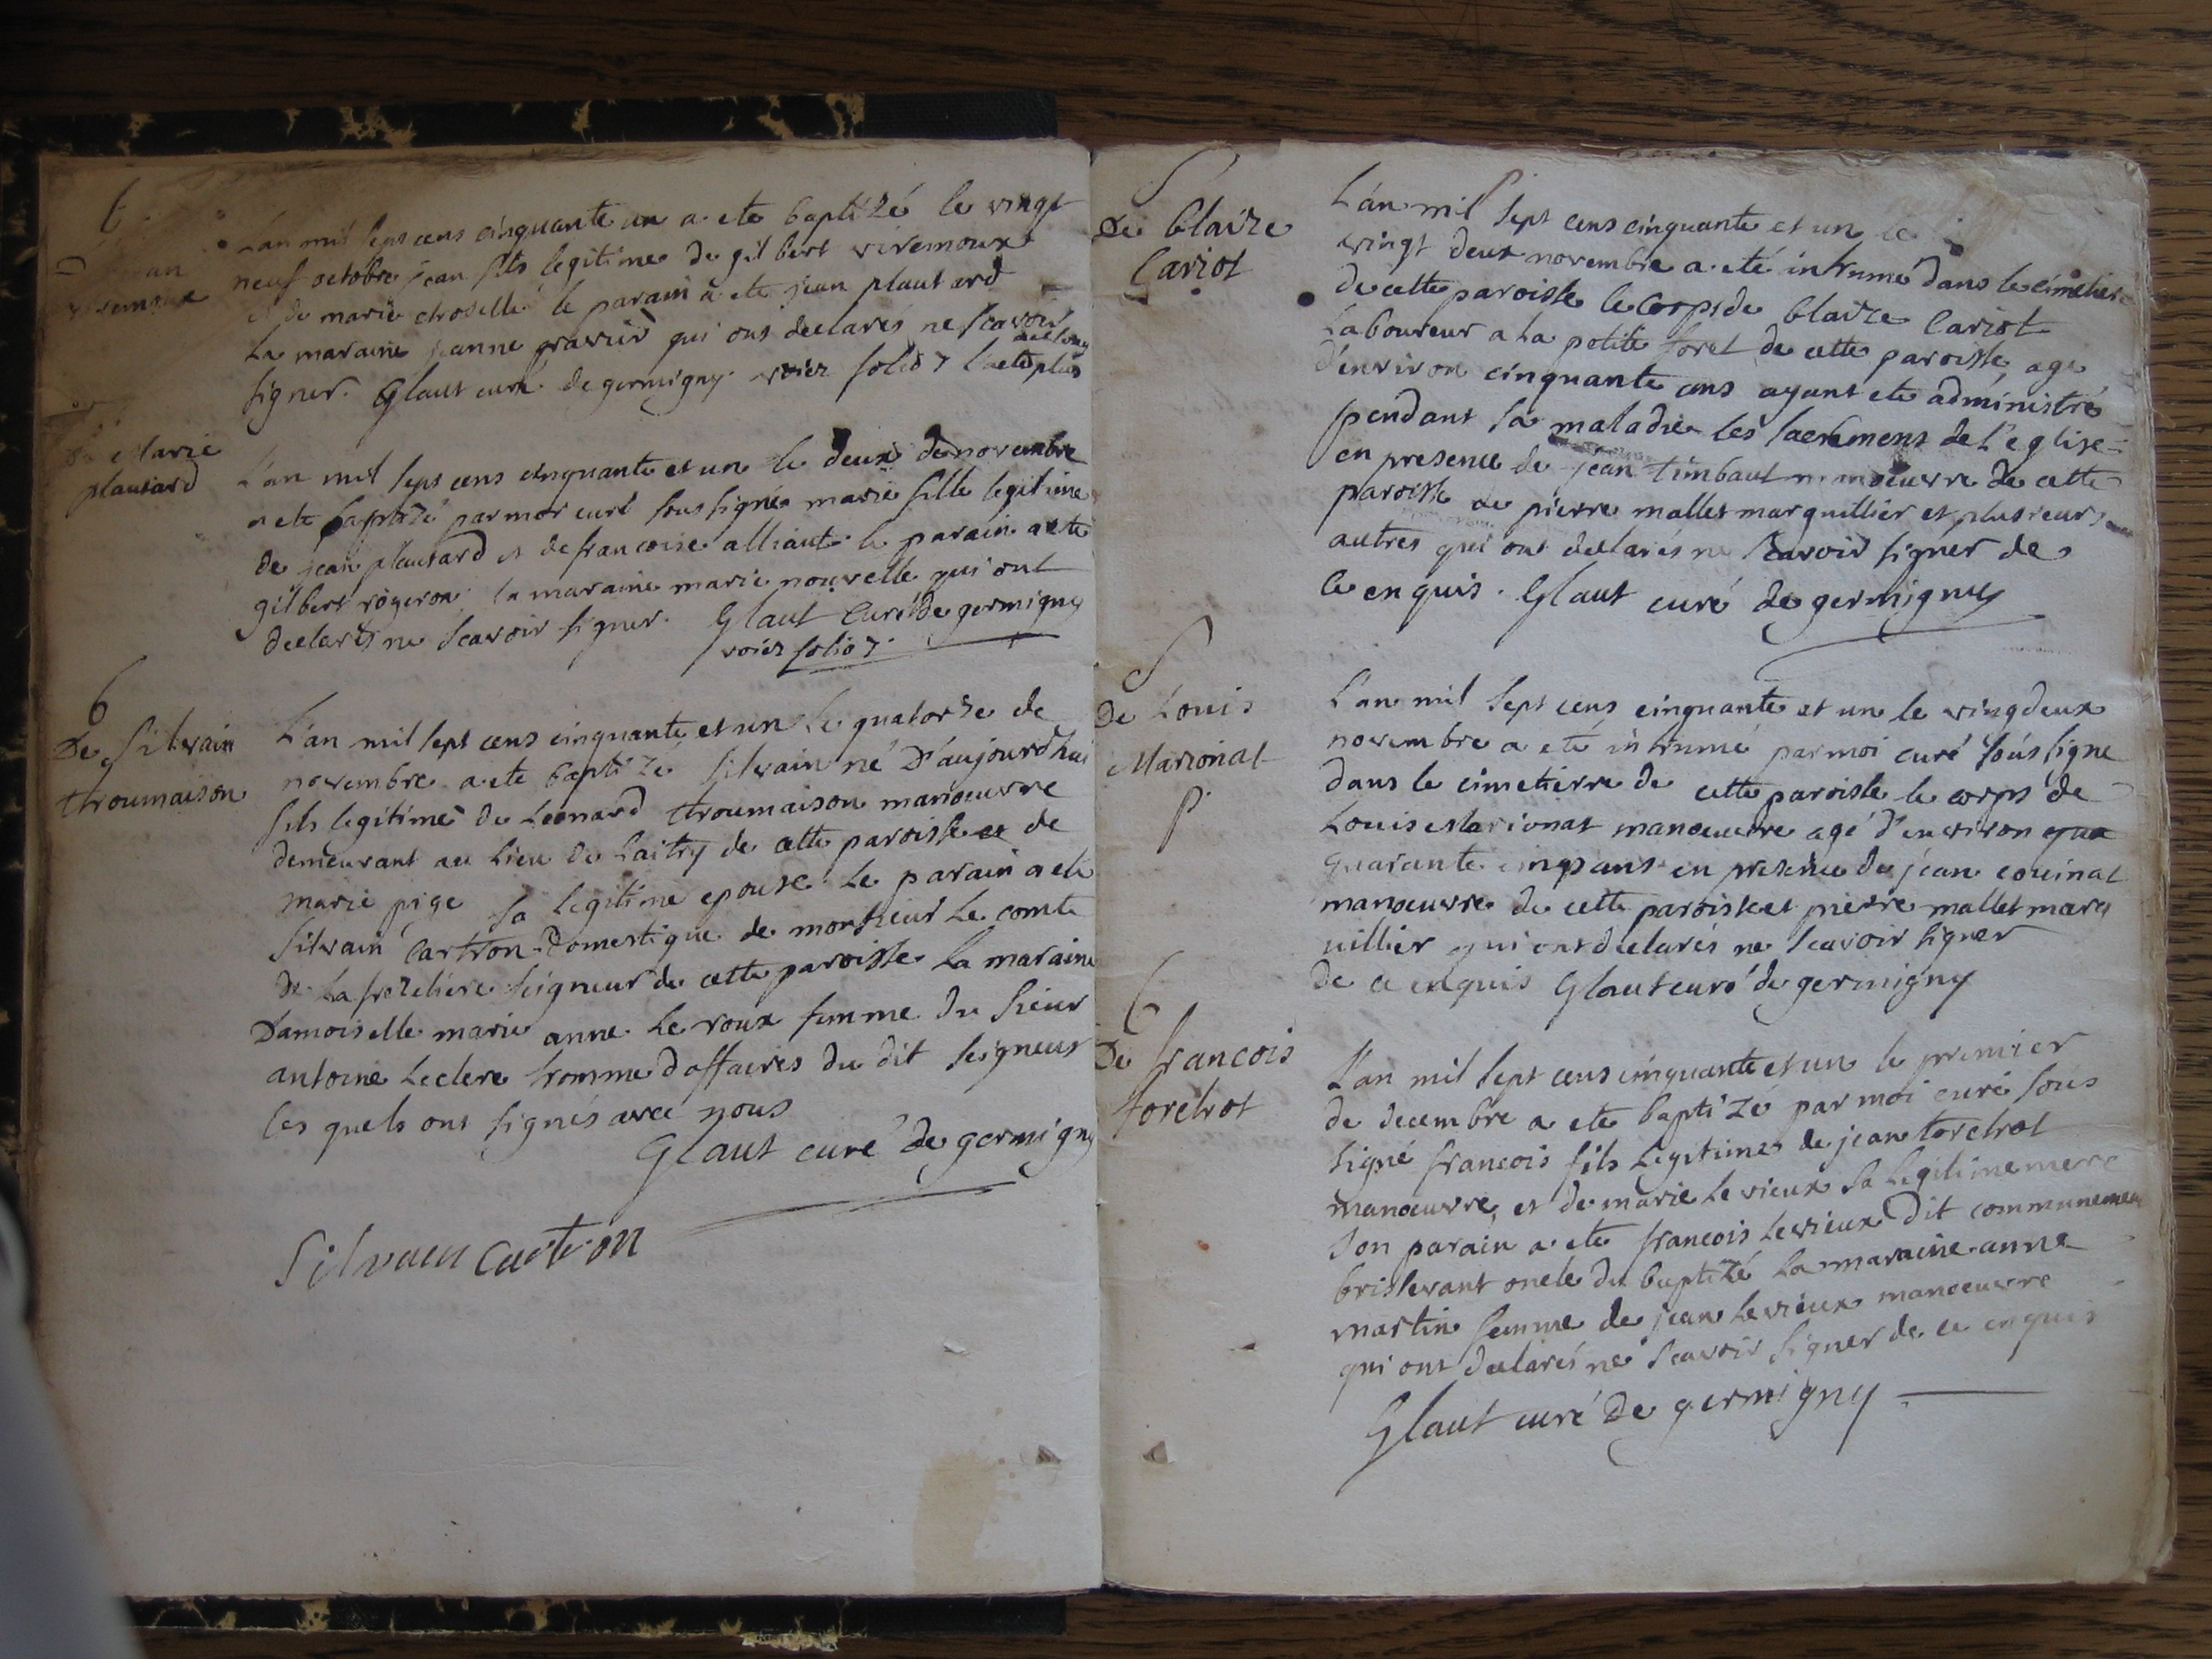 De jean
viremoux
L'an mil sept cens cinquante un a ete baptizé le vingt
neuf octobre jean fils legitime de gilbert viremoux
et de marie choselle le parain a ete jean plautard
la maraine jeanne gravier qui ont declarés ne scavoir
signer. Glaut curé de germigny. voiez folio 7 l'acte plus
au long
De Marie
plautard
L'an mil sept cens cinquante et un le deux de novembre
a ete baptizé par moi curé soussigné marie fille legitime
de jean plautard et de francoise alliaut le parain a ete
gilbert rogeron la maraine marie nouvelle qui ont
declarés ne scavoir signer. Glaut Curé de germigny
voiez folio 7.
b
De Silvain
throumaison
L'an mil sept cens cinquante et un le quatorze de
novembre a ete baptizé silvain né D'aujourd'hui
fils legitime de Leonard throumaison manoeuvre
demeurant au lieu de Laitry de cette paroisse et de
marie pige sa legitime epouse. Le parain a ete
silvain Cartron Domestique de monsieur Le comte
De La frezeliere seigneur de cette paroisse La maraine
Damoiselle marie anne Le roux femme du sieur
antoine Leclerc homme d'affaires du dit seigneur
les quels ont signés avec nous
Glaut curé de germigny
Silvain Cartron
S
De blaize
Cariot
L'an mil sept cens cinquante et un le
vingt deux novembre a eté inhumé dans le cimetiere
de cette paroisse le Corps de blaize Cariot
Laboureur a La petite foret de cette paroisse age
d'environ cinquante ans ayant ete administré
pendant sa maladie les sacremens de l'eglise
en presence de jean timbaut manoeuvre de cette
paroisse de pierre mallet marguillier et plusieurs
autres qui ont declarés ne scavoir signer de
ce enquis. Glaut curé de germigny
S
De Louis
Marionat
p.
L'an mil sept cens cinquante et un le vingdeux
novembre a eté inhumé par moi curé sous signe
dans le cimetierre de cette paroisse le corps de
Louis Marionat manoeuvre agé d'environ qua
quarante cinq ans en presence de jean couinat
manoeuvre de cette paroisse et pierre mallet marg
uillier qui ont declarés ne scavoir signer
de ce enquis Glaut curé de germigny
b
De francois
torchrot
L'an mil sept cens cinquante et un le premier
de decembre a ete baptizé par moi curé sous
signé francois fils Legitime de jean torchrot
manoeuvre, et de marie Le vieux sa Legitime mere
son parain a ete francois Levieux dit communement
brislevant oncle du baptizé La maraine anne
martin femme de jean Levieux manoeuvre
qui ont declarés ne scavoir signer de ce enquis
Glaut curé De germigny